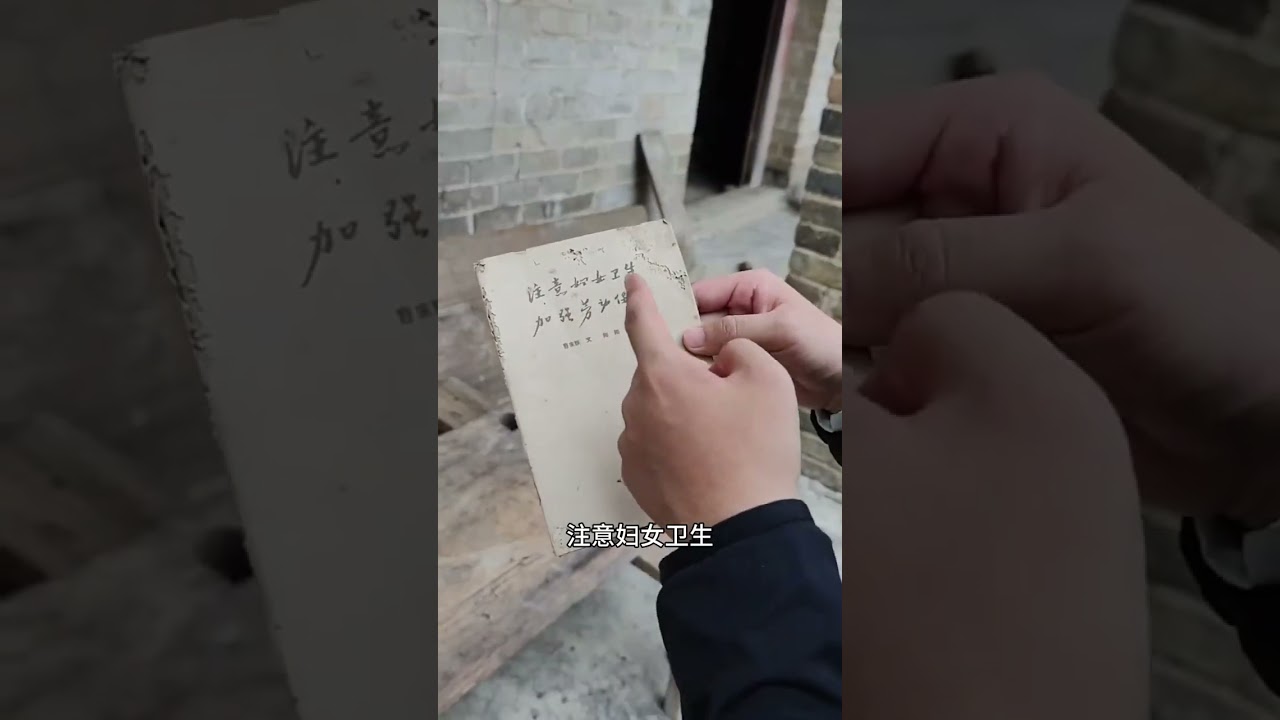 注意妇女卫生
加强劳动保
注意妇女卫生